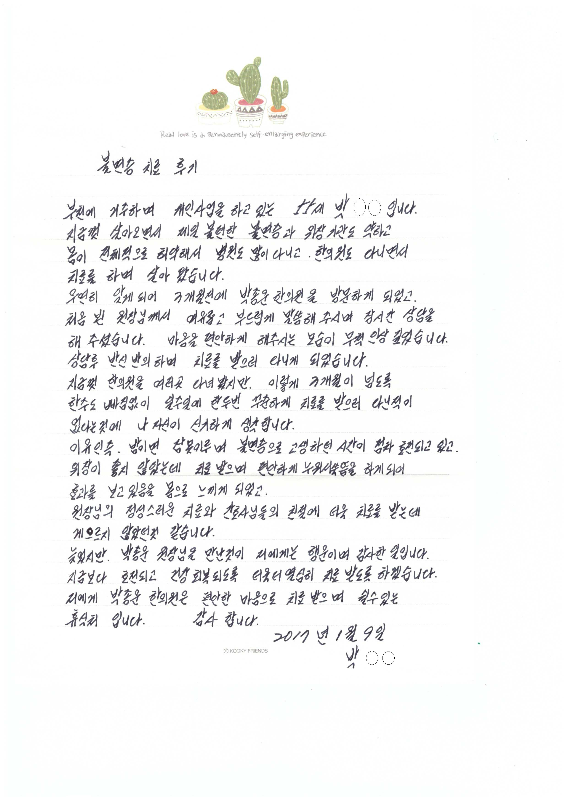 Real love is a permanently self-enlarging experience.
불면증 치료 후기
부천에 거주하며 개인사업을 하고 있는 55세 박○○입니다.
지금껏 살아오면서 제일 불편한 불면증과 위장기관도 약하고
몸이 전체적으로 허약해서 병원도 많이 다니고, 한의원도 다니면서
치료를 하며 살아 왔습니다.
우연히 알게되어 3개월전에 박종운한의원을 방문하게 되었고,
처음 뵌 원장님께서 여유롭고 부드럽게 말씀해 주시며 장시간 상담을
해 주셨습니다. 마음을 편안하게 해주시는 모습이 무척 인상 깊었습니다.
상담후 반신반의하며 치료를 받으러 다니게 되었습니다.
지금껏 한의원을 여러곳 다녀봤지만, 이렇게 3개월이 넘도록
한주도 빠짐없이 일주일에 한두번 꾸준하게 치료를 받으러 다닌적이
없다는것에 나 자신이 신기하게 생각합니다.
이유인즉, 밤이면 잠못이루며 불면증으로 고생하던 시간이 점차 호전되고 있고,
위장이 좋지 않았는데 치료 받으며 편안하게 누워서 뜸을 하게되어
효과를 보고 있음을 몸으로 느끼게 되었고,
원장님의 정성스러운 치료와 간호사님들의 친절에 더욱 치료를 받는데
게으르지 않았던것 같습니다.
늦었지만, 박종운 원장님을 만난것이 저에게는 행운이며 감사한 일입니다.
지금보다 호전되고 건강 회복되도록 더욱더 열심히 치료 받도록 하겠습니다.
저에게 박종운 한의원은 편안한 마음으로 치료 받으며 쉴수있는
휴식처 입니다. 감사 합니다.
2017년 1월 9일
박○○
FRIENDS